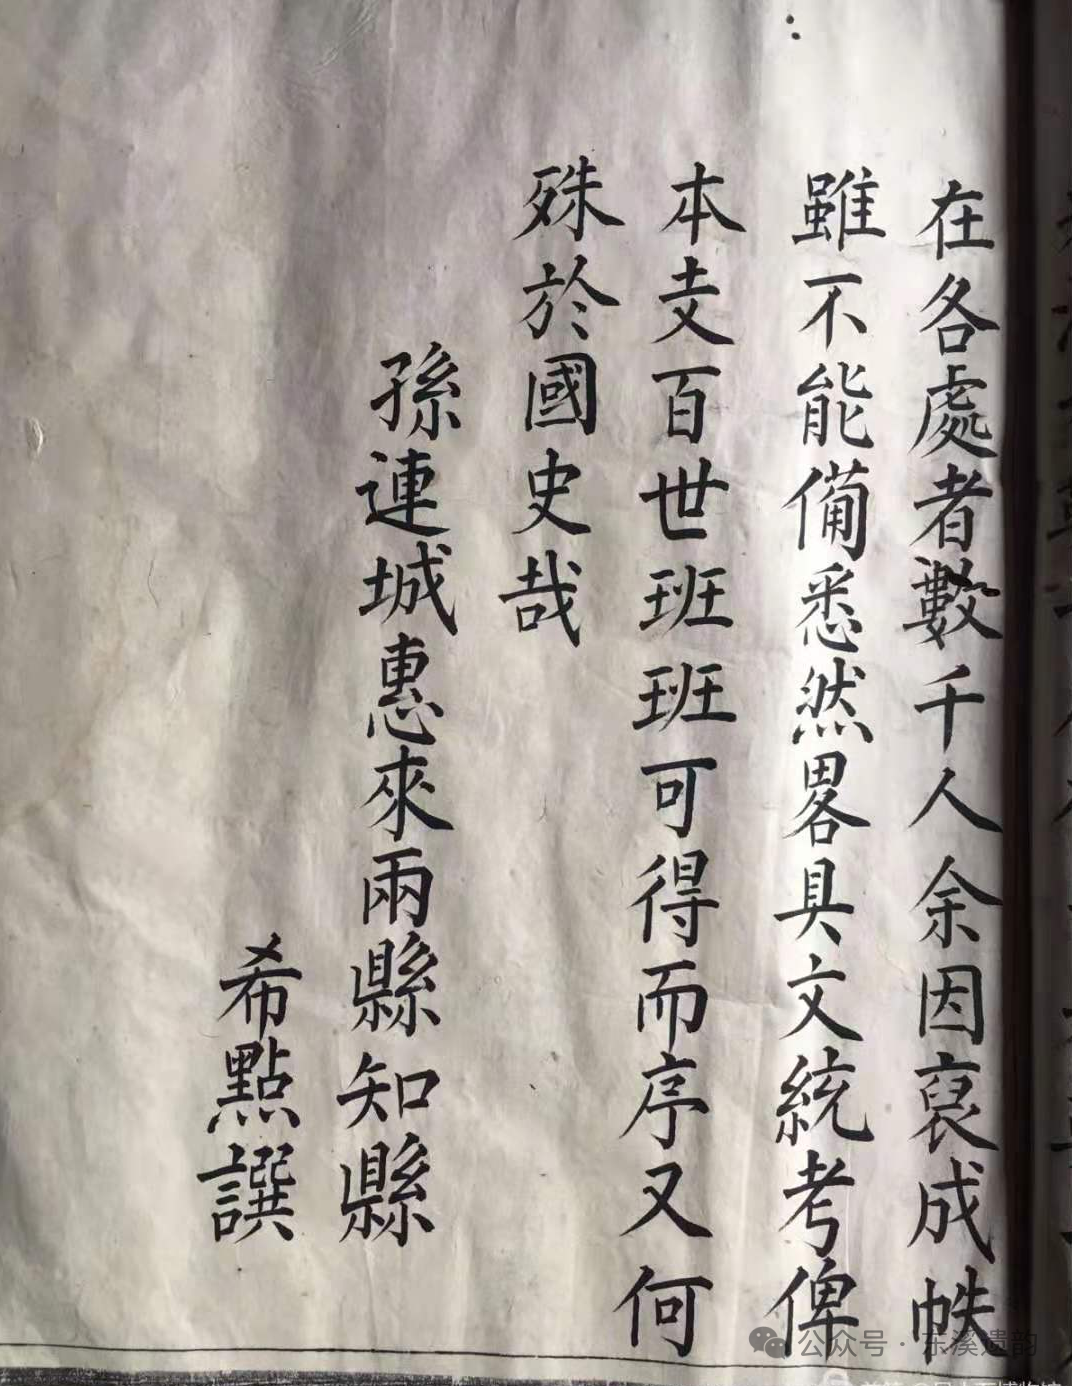 在各處者數千人余因裒成帙
雖不能備悉然畧具文統考俾
本支百世班班可得而序又何
殊於國史哉
孫連城惠來兩縣知縣
希點譔
公众号·东溪遗韵